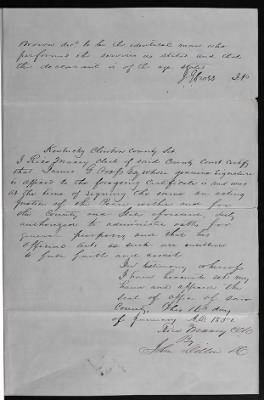 to be the identical man who
performed the service as stated and that
the declarant is of the age stated
J G Cross
Kentucky Clinton County Sct
I Rice Maxey clerk of said County Court certify
that James G Cross Esq whose genuine signature
is affixed to the foregoing Certificate is and was
at the time of signing the same an acting
Justice of the Peace within and for
the County and State aforesaid, duly
authorized to administer oaths for
general purposes and that his
official acts as such are entitled
to full faith and credit
In testimony whereof
I have hereunto set my
hand and affixed the
seal of office of said
County, This day
of January A.D. 185
Rice Maxey
By
John